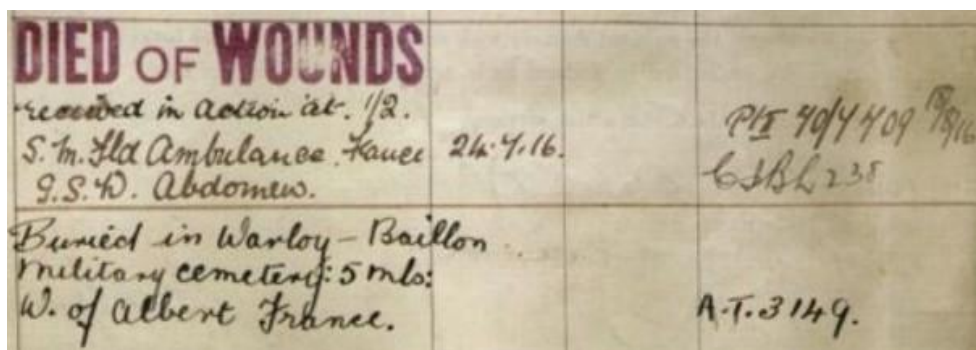 DIED OF WOUNDS
received in action at. 1/2.
S. M. Fld Ambulance. France 24.7.16.
G.S.W. Abdomen.
Pt II 40/4409 18/8/16
238
Buried in Warloy - Baillon
Military cemetery: 5 mls:
W. of Albert France.
A.T. 3149.